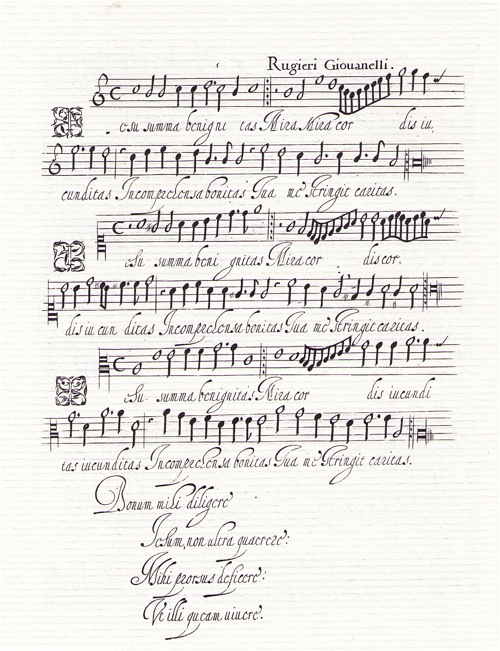 Rugieri Giouanelli.
Iesu summa benigni tas Mira Mira cor dis iu,
cunditas Incomprehensa bonitas Tua me stringit caritas.
Iesu summa beni gnitas Mira cor dis cor.
dis iu cun ditas Incomprehensa bonitas Tua me stringit caritas.
Iesu summa benignitas Mira cor dis iucundi
tas iucunditas Incomprehensa bonitas Tua me stringit caritas.
Bonum mihi diligere
Iesum, non ultra quaerere:
Mihi prorsus deficere:
Vt illi queam uiuere.